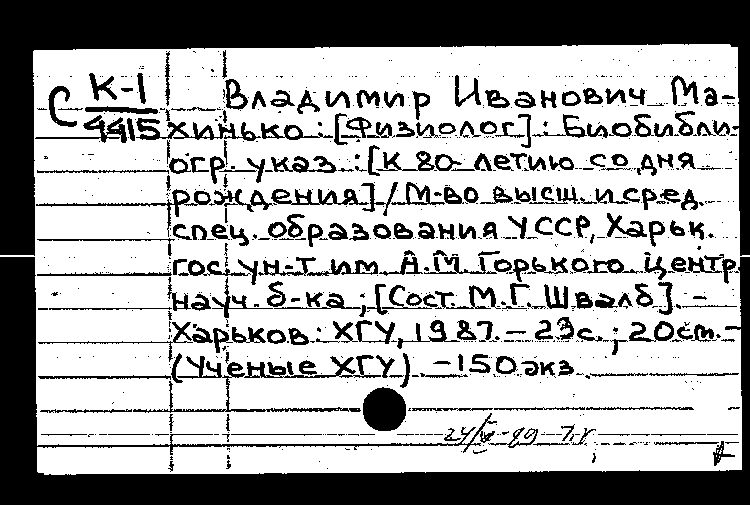 С К-1 Владимир Иванович Ма-
4415 хинько : [Физиолог] : Биобибли-
огр. указ. : [К 80-летию со дня
рождения] / М-во высш. и сред.
спец. образования УССР, Харьк.
гос. ун-т им. А.М. Горького. Центр.
науч. б-ка ; [Сост. М.Г. Швалб]. -
Харьков : ХГУ, 1987. - 23с. ; 20см. -
(Ученые ХГУ). - 150 экз.